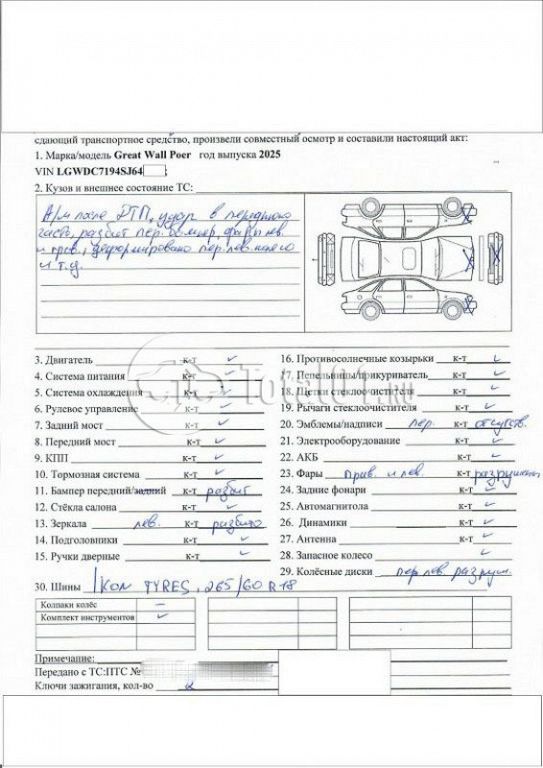 сдающий транспортное средство, произвели совместный осмотр и составили настоящий акт:
1. Марка/модель Great Wall Poer год выпуска 2025
VIN LGWDC7194SJ64
2. Кузов и внешнее состояние ТС:
А/м после ДТП, удар в переднюю
часть, разбит пер. бампер, фары лев
и прав., деформировано пер. лев. колесо
и т.д.
3. Двигатель к-т ✓
4. Система питания к-т ✓
5. Система охлаждения к-т ✓
6. Рулевое управление к-т ✓
7. Задний мост к-т ✓
8. Передний мост к-т ✓
9. КПП к-т ✓
10. Тормозная система к-т ✓
11. Бампер передний/задний к-т разбит
12. Стёкла салона к-т ✓
13. Зеркала лев. к-т разбито
14. Подголовники к-т ✓
15. Ручки дверные к-т ✓
16. Противосолнечные козырьки к-т ✓
17. Пепельницы/прикуриватель к-т ✓
18. Щетки стеклоочистителя к-т ✓
19. Рычаги стеклоочистителя к-т ✓
20. Эмблемы/надписи пер. к-т отсутств.
21. Электрооборудование к-т ✓
22. АКБ к-т ✓
23. Фары прав. и лев. к-т разрушены
24. Задние фонари к-т ✓
25. Автомагнитола к-т ✓
26. Динамики к-т ✓
27. Антенна к-т ✓
28. Запасное колесо ✓
29. Колёсные диски пер лев. разруш.
30. Шины IKON TYRES, 265/60 R18
Колпаки колёс –
Комплект инструментов ✓
Примечание:
Передано с ТС:ПТС №
Ключи зажигания, кол-во 2
Total01.ru